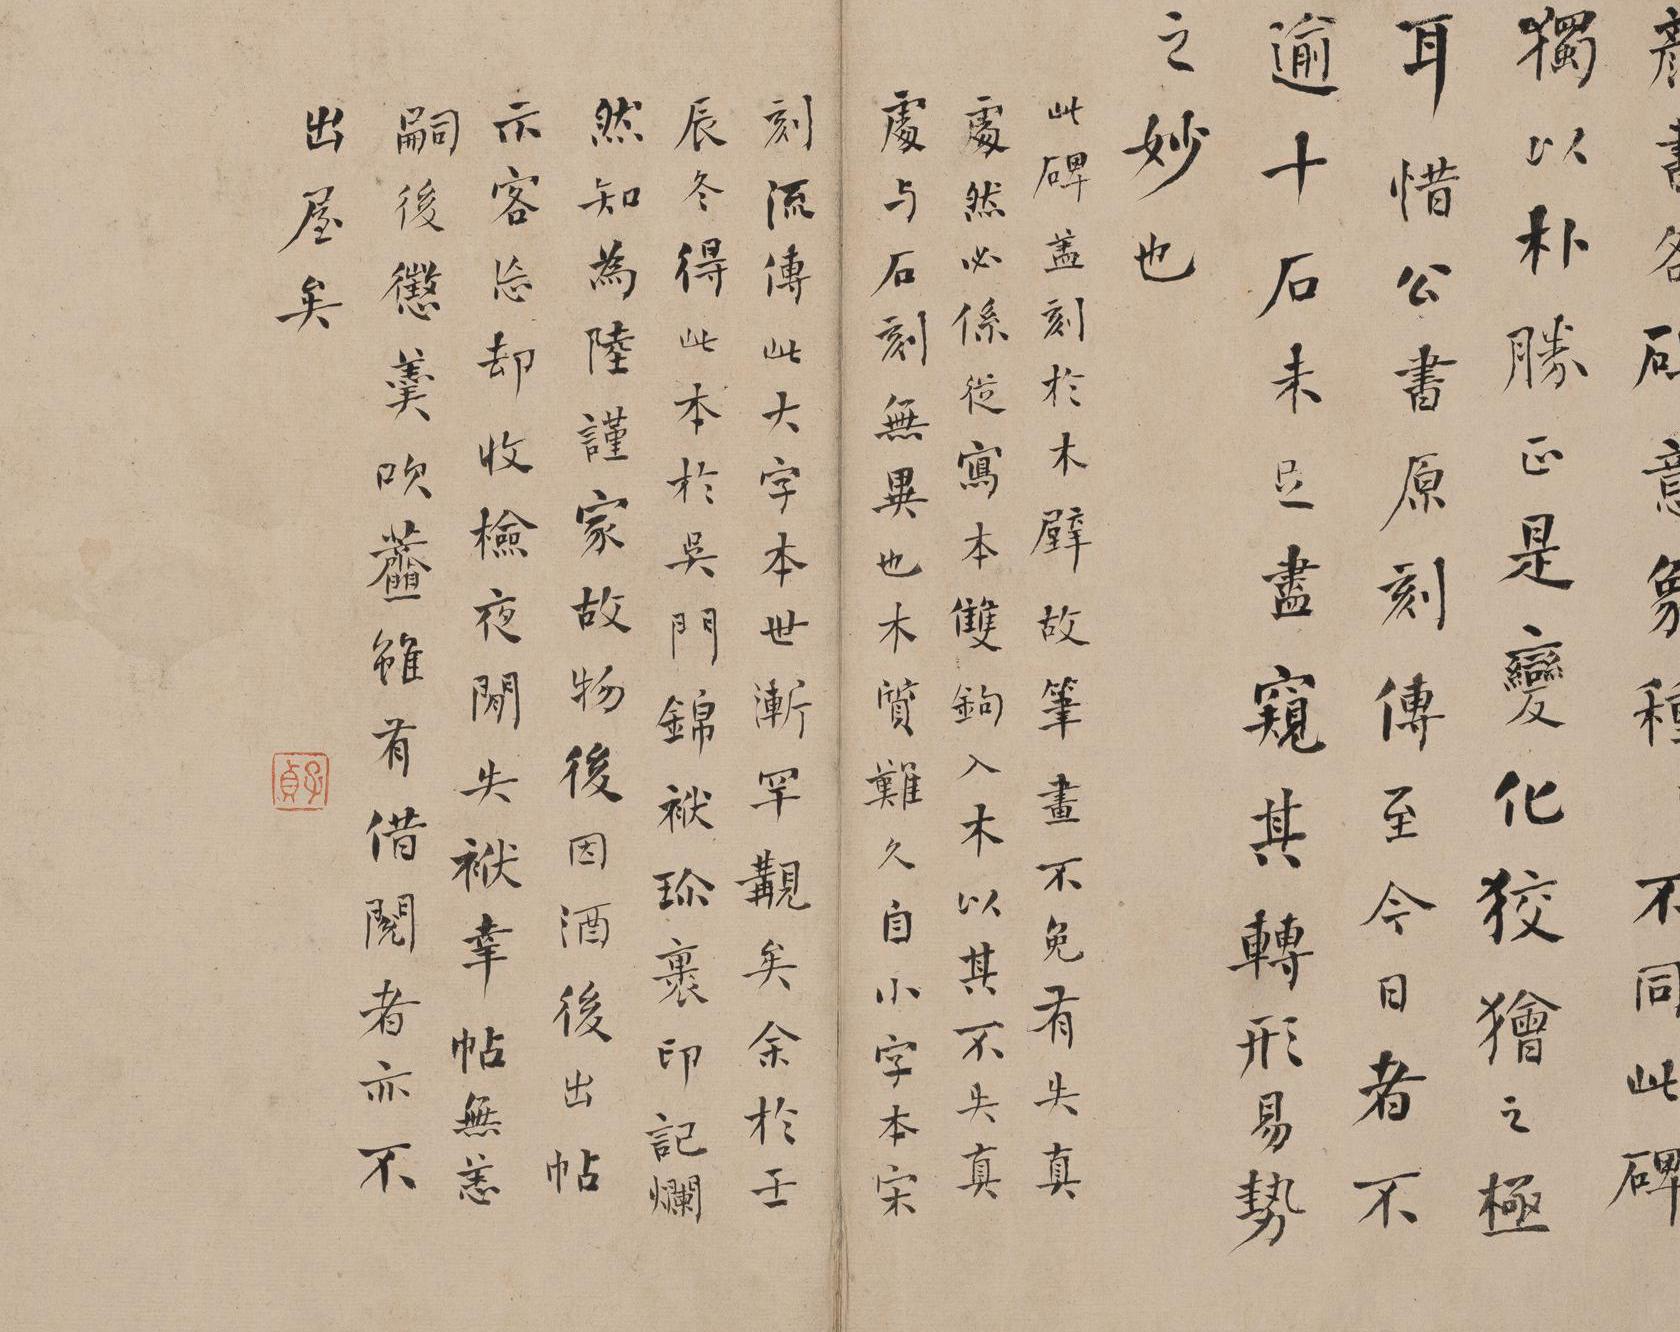 顏書各碑意象種種不同此碑
獨以朴勝正是變化狡獪之極
耳惜公書原刻傳至今日者不
逾十石未足盡窺其轉形易勢
之妙也
此碑蓋刻於木壁故筆畫不免有失真
處然必係從寫本雙鉤入木以其不失真
處与石刻無異也木質難久自小字本宋
刻流傳此大字本世漸罕覯矣余於壬
辰冬得此本於吳門錦袱珍裹印記爛
然知為陸謹家故物後因酒後出帖
示客忘却收檢夜閒失袱幸帖無恙
嗣後懲羹吹虀雖有借閱者亦不
出屋矣
子貞